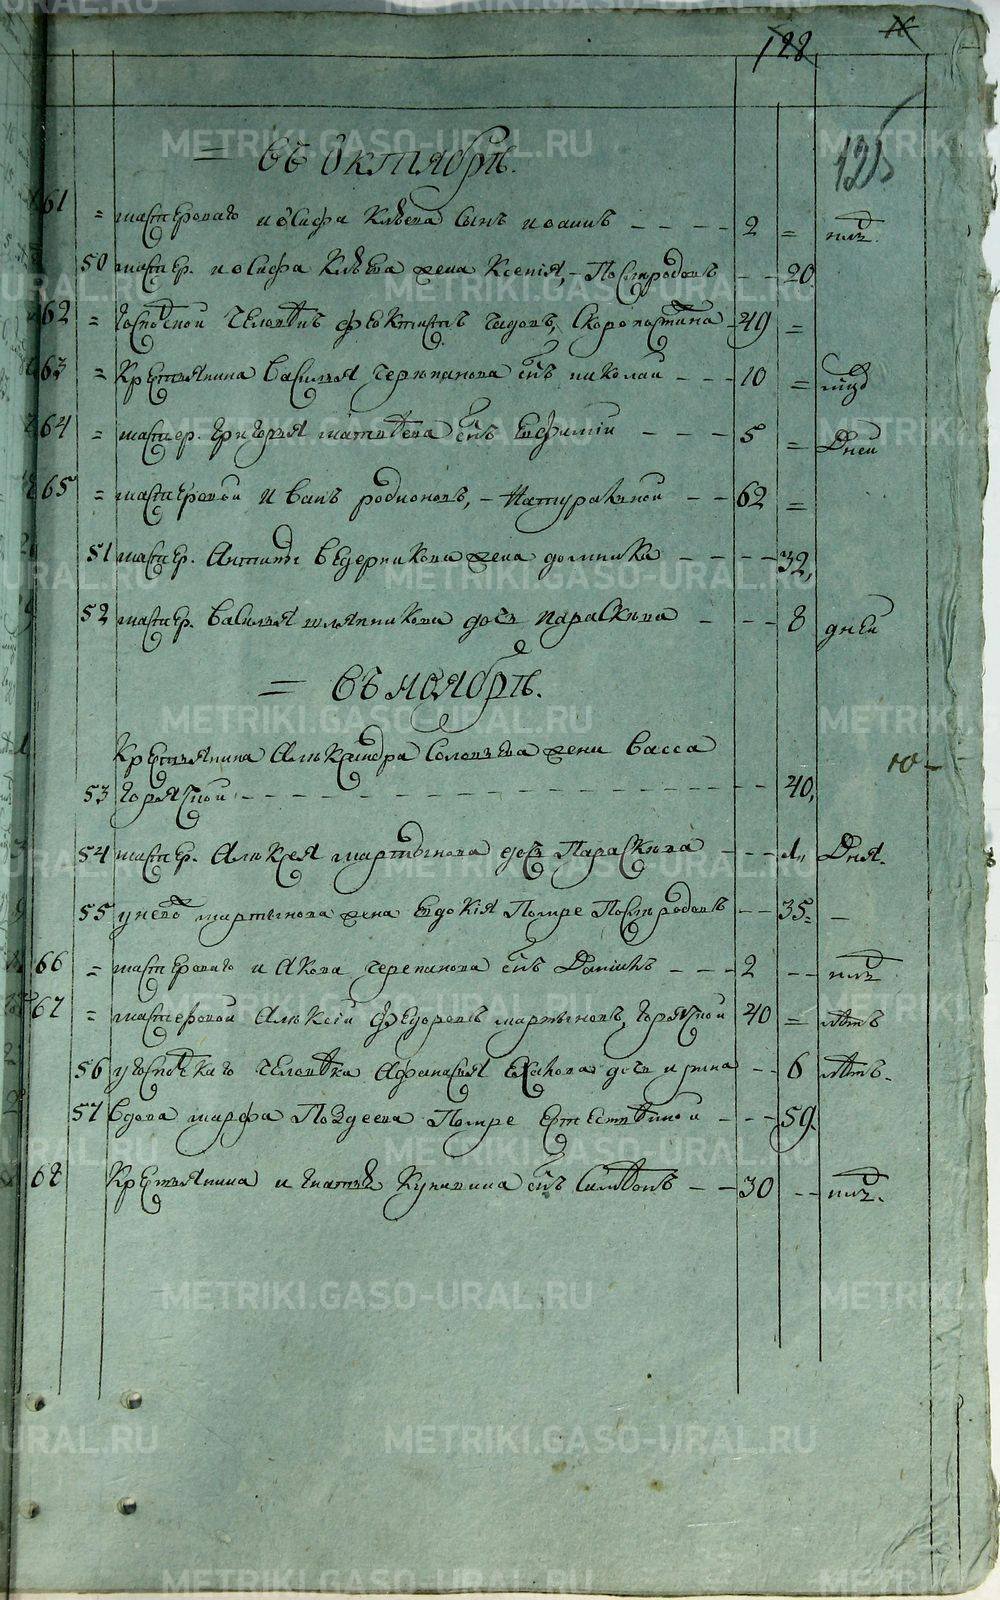 128
125
= въ Октябрѣ.
61 = мастероваго иосифа Клѣева сынъ иоаннъ - - - - 2 = нлд.
50 мастер. иосифа Клѣева жена Ксенія, - Послѣродовъ - - 20
62 = Господской человѣкъ феоктистъ скоропостижна - 49 =
63 = Крестьянина василья черепанова снъ николаи - - - 10 = мцъ
64 = мастер. григорья матвѣева снъ Евфимїи - - - - 5 = дней
65 = мастеровой Иванъ родионовъ, - Натуральной - - 62 =
51 мастер. Антипы ведерникова жена домника - - - - 32,
52 мастер. василья шляпникова дочь параскѣва - - - - 8 дней
= въ ноябрѣ.
Крестьянина Алѣксандра Соловьева жена васса
53 горячкой - - - - 40,
54 мастер. Алѣксѣя мартынова дочь Параскѣва - - - 1, Дня.
55 у нево мартынова жена Евдокїя Помре Послѣродовъ - - 35. -
66 = мастероваго иАкова черепанова снъ Данїилъ - - - 2 - - нлд
67 = мастеровой Алѣксѣй федоровъ мартыновъ, горячкой 40 = лѣтъ
56 у Господскаго человѣка Афанасья дочь ирина - - 6 лѣтъ.
57 вдова марфа Поздеева Помре Естествѣнной - - - 59.
68 Крестьянина игнатья снъ Симѣонъ - - 30 - - нлд.
METRIKI.GASO-URAL.RU